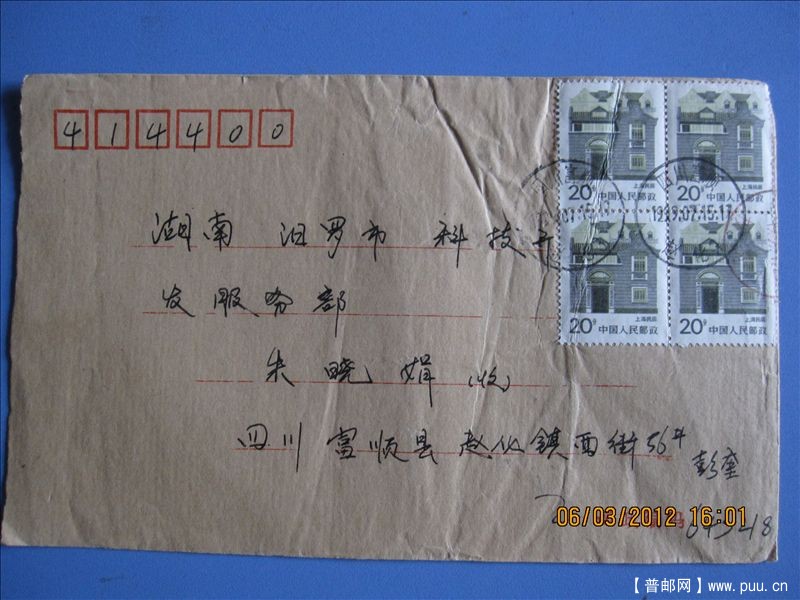 414400
湖南 汨罗市 科技开
发服务部
朱晓娟 (收)
四川 富顺县 赵化镇西街56#
彭奎
上海民居
20分 中国人民邮政
上海民居
20分 中国人民邮政
1999.07.15.17
上海民居
20分 中国人民邮政
上海民居
20分 中国人民邮政
06/03/2012 16:01
【普邮网】www.puu.cn